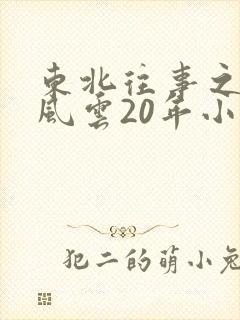 東北往事之
風雲20年小
犯二的萌小兔